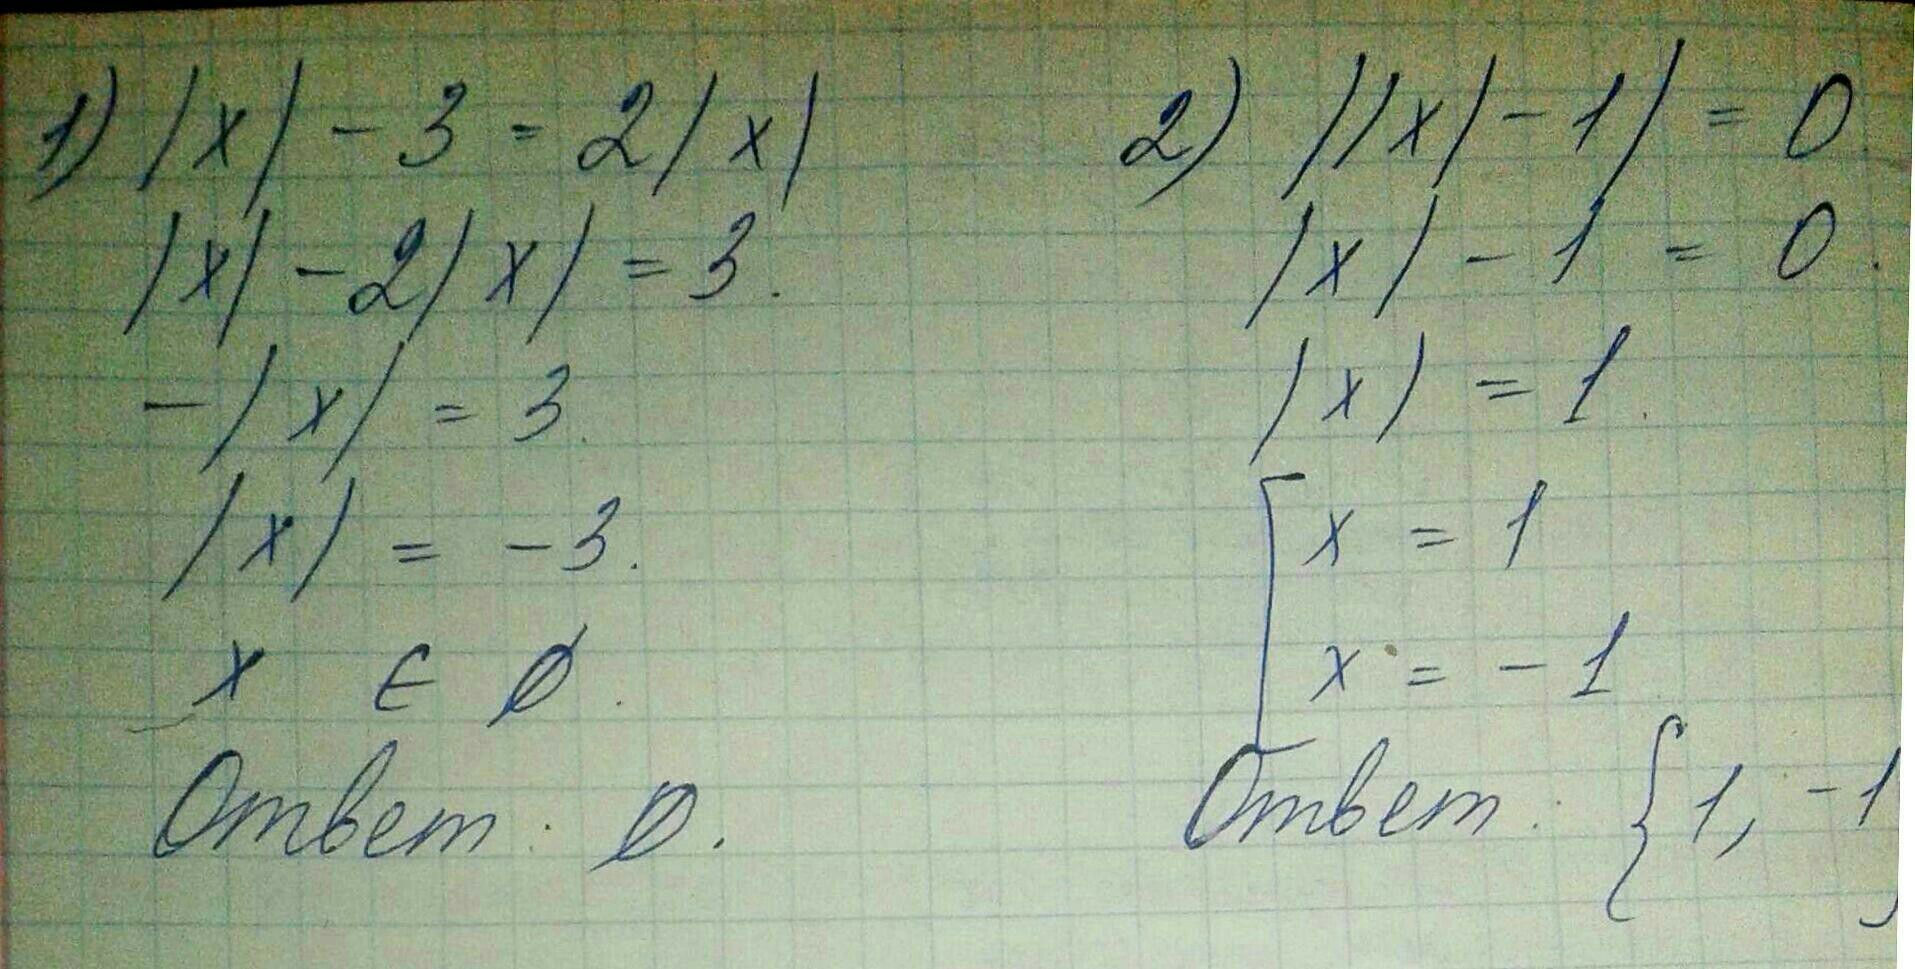 1) |x| - 3 = 2|x|
|x| - 2|x| = 3.
-|x| = 3.
|x| = -3.
x ∈ ∅.
Ответ: ∅.
2) ||x| - 1| = 0
|x| - 1 = 0.
|x| = 1.
[ x = 1
x = -1
Ответ: {1, -1}